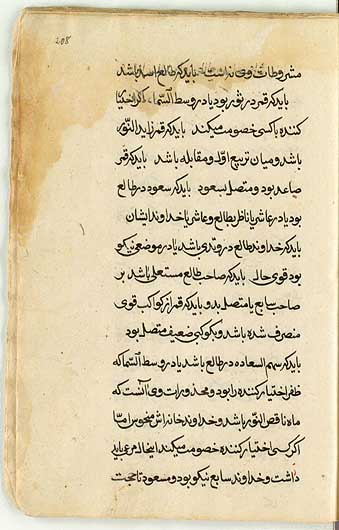 208
مشروطات وی نداست باید که طالع اسد باشد
باید که قمر در ثور بود یا در وسط السّماء اگر اختیار
کننده با کسی خصومت میکند باید که قمر زاید النّور
باشد و میان تربیع اوّل و مقابله باشد باید که قمر
صاعد بود و متصل بسعود باید که سعود در طالع
بود یا در عاشر یا ناظر بطالع و عاشر یا خداوند ایشان
باید که خداوند طالع در وتدی باشد یا در موضعی نیکو
بود قوی حال باید که صاحب طالع مستعلی باشد بر
صاحب سابع یا متصل بدو باید که قمر از کواکب قوی
منصرف شده باشد و بکوکبی ضعیف متصل بود
باید که سهم السعاده در طالع باشد یا در وسط السّما که
ظفر اختیار کننده را بود و محذورات وی آنست که
ماه ناقص النّور باشد و خداوند خانه اش منحوس امّا
اگر کسی با اختیار کننده خصومت میکند اینحال مرعی باید
داشت و خداوند سابع نیکو بود و مسعود تا حجت